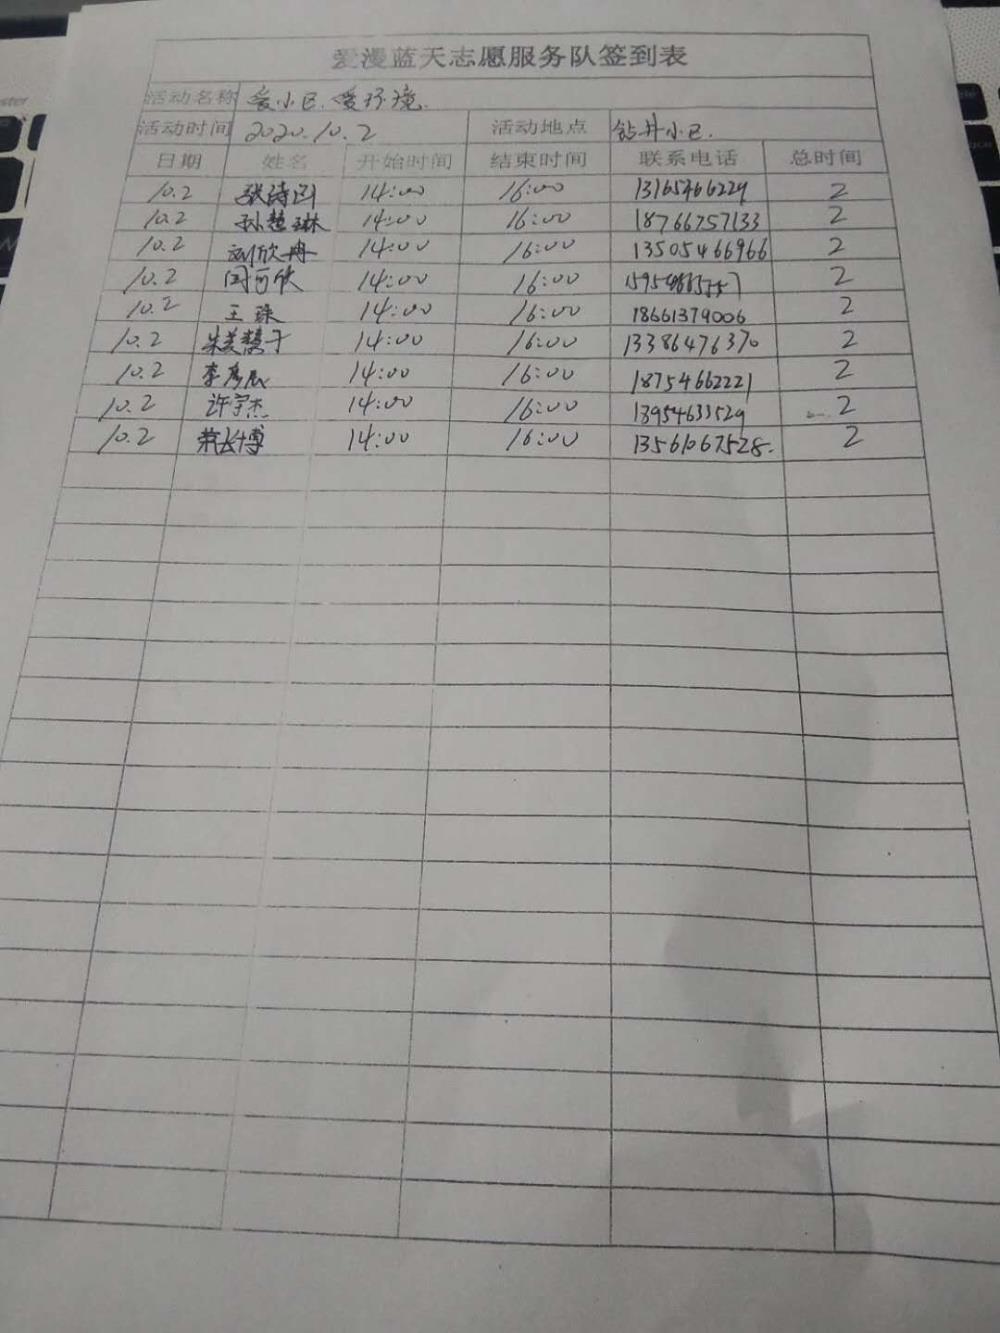 爱漫蓝天志愿服务队签到表
活动名称 爱小区.爱环境.
活动时间 2020.10.2 活动地点 钻井小区.
日期 姓名 开始时间 结束时间 联系电话 总时间
10.2 张诗函 14:00 16:00 13165466229 2
10.2 孙楚琳 14:00 16:00 18766757133 2
10.2 刘欣冉 14:00 16:00 13505466966 2
10.2 闫可欣 14:00 16:00 2
10.2 王 14:00 16:00 18661379006 2
10.2 朱美慧子 14:00 16:00 13386476370 2
10.2 李彦辰 14:00 16:00 18754662221 2
10.2 许宇杰 14:00 16:00 13954633529 2
10.2 博 14:00 16:00 13561067528. 2